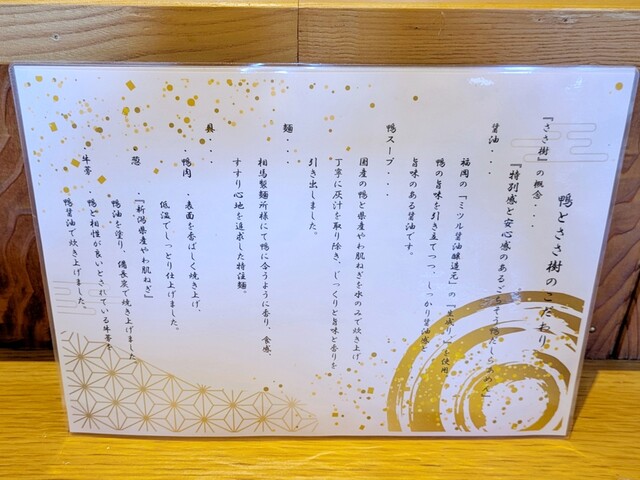 鴨とささ樹のこだわり
『ささ樹』の概念・・・
『特別感と安心感のあるごちそう鴨だしらぁめん』
醤油・・・
福岡の『ミツル醤油醸造元』の『生成り』を使用
鴨の旨味を引き立てつつ、しっかり醤油感と
旨味のある醤油です。
鴨スープ・・・
国産の鴨と県産やわ肌ねぎを水のみで炊き上げ
丁寧に灰汁を取り除き、じっくりと旨味と香りを
引き出しました。
麺・・・
相馬製麺所様にて鴨に合うように香り、食感、
すすり心地を追求した特注麺。
具・・・
・鴨肉 ・表面を香ばしく焼き上げ、
低温でしっとり仕上げました。
・葱 ・『新潟県産やわ肌ねぎ』
鴨油を塗り、備長炭で焼き上げました
・牛蒡 ・鴨と相性が良いとされている牛蒡を
鴨醤油で炊き上げました。